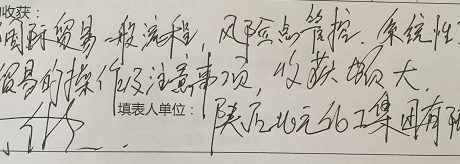 收获：
国际贸易一般流程，风险点管控，系统性
贸易的操作及注意事项，收获颇大，
填表人单位： 陕西北元化工集团有限